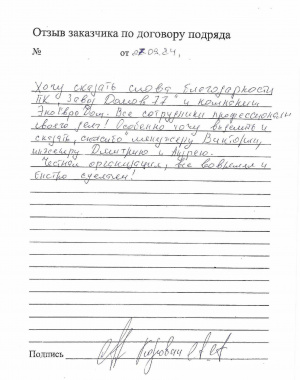 Отзыв заказчика по договору подряда
№ от 07.09.24,
Хочу сказать слова благодарности
ПК "Завод Домов 77" и компании
ЭкоЕвроДом. Все сотрудники профессионалы
своего дела! Особенно хочу выделить и
сказать "спасибо" менеджеру Виктории,
инженеру Дмитрию и Андрею.
Честная организация, все вовремя и
быстро сделали!
Подпись